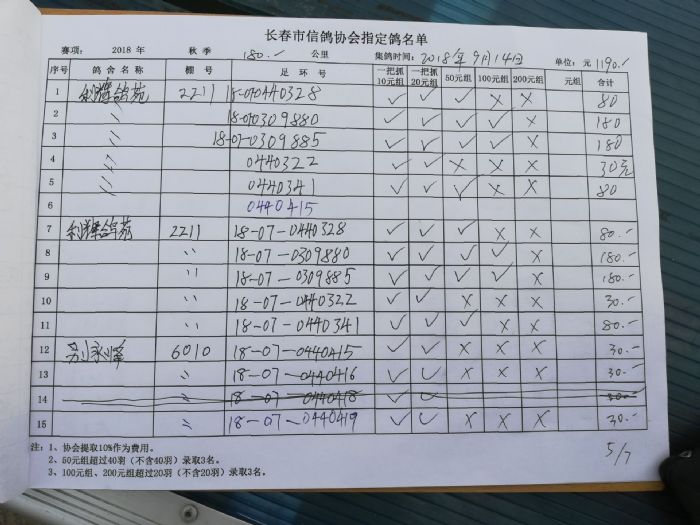 长春市信鸽协会指定鸽名单
赛项: 2018 年 秋季 180.- 公里 集鸽时间: 2018年9月14日 单位: 元 1190.-
序号 鸽舍名称 棚号 足环号 一把抓10元组 一把抓20元组 50元组 100元组 200元组 元组 合计
1 利辉鸽苑 2211 18-07-0440328 ✓ ✓ ✓ × × 80
2 〃 18-07-0309880 ✓ ✓ ✓ ✓ × 180
3 〃 18-07-0309885 ✓ ✓ ✓ ✓ × 180
4 〃 0440322 ✓ ✓ × × × 30元
5 〃 0440341 ✓ ✓ ✓ × × 80
6 0440415
7 利辉鸽苑 2211 18-07-0440328 ✓ ✓ ✓ × × 80.-
8 〃 18-07-0309880 ✓ ✓ ✓ ✓ × 180.-
9 〃 18-07-0309885 ✓ ✓ ✓ ✓ × 180.-
10 〃 18-07-0440322 ✓ ✓ × × × 30.-
11 〃 18-07-0440341 ✓ ✓ ✓ × × 80.-
12 6010 18-07-0440415 ✓ ✓ × × × 30.-
13 〃 18-07-0440416 ✓ ✓ × × × 30.-
14 18-07-0440418 ✓ ✓ × × × 30.-
15 〃 18-07-0440419 ✓ ✓ × × × 30.-
注: 1、协会提取10%作为费用。
2、50元组超过40羽（不含40羽）录取3名。
3、100元组、200元组超过20羽（不含20羽）录取3名。
5/7